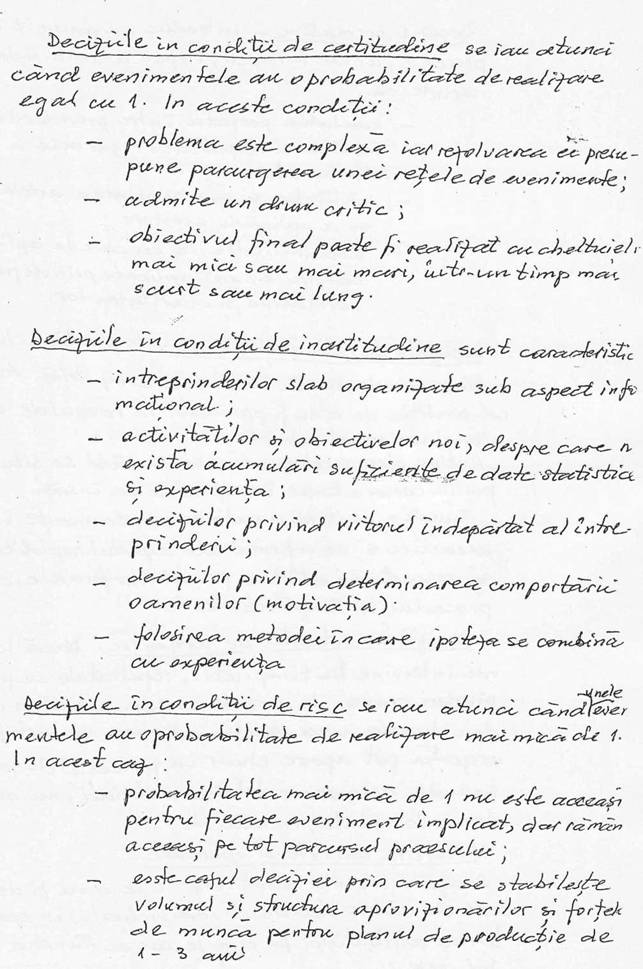 Deciziile in condiții de certitudine se iau atunci
când evenimentele au o probabilitate de realizare
egal cu 1. In aceste condiții:
– problema este complexă iar rezolvarea ei presu-
pune parcurgerea unei rețele de evenimente;
– admite un drum critic;
– obiectivul final poate fi realizat cu cheltuieli
mai mici sau mai mari, într-un timp mai
scurt sau mai lung.
Deciziile în condiții de incertitudine sunt caracteristic
– intreprinderilor slab organizate sub aspect info
mational;
– activitătilor și obiectivelor noi, despre care n
exista acumulări suficiente de date statistice
și experiența;
– deciziilor privind viitorul îndepărtat al intre-
prinderii;
– deciziilor privind determinarea comportării
oamenilor (motivația)
– folosirea metodei în care ipoteza se combină
cu experiența
Deciziile în condiții de risc se iau atunci când unele eve
mentele au o probabilitate de realizare mai mică de 1.
In acest caz:
– probabilitatea mai mică de 1 nu este aceeași
pentru fiecare eveniment implicat, dar rămân
aceeași pe tot parcursul procesului;
– este cazul deciziei prin care se stabilește
volumul și structura aprovizionărilor și forțek
de muncă pentru planul de producție de
1-3 ani